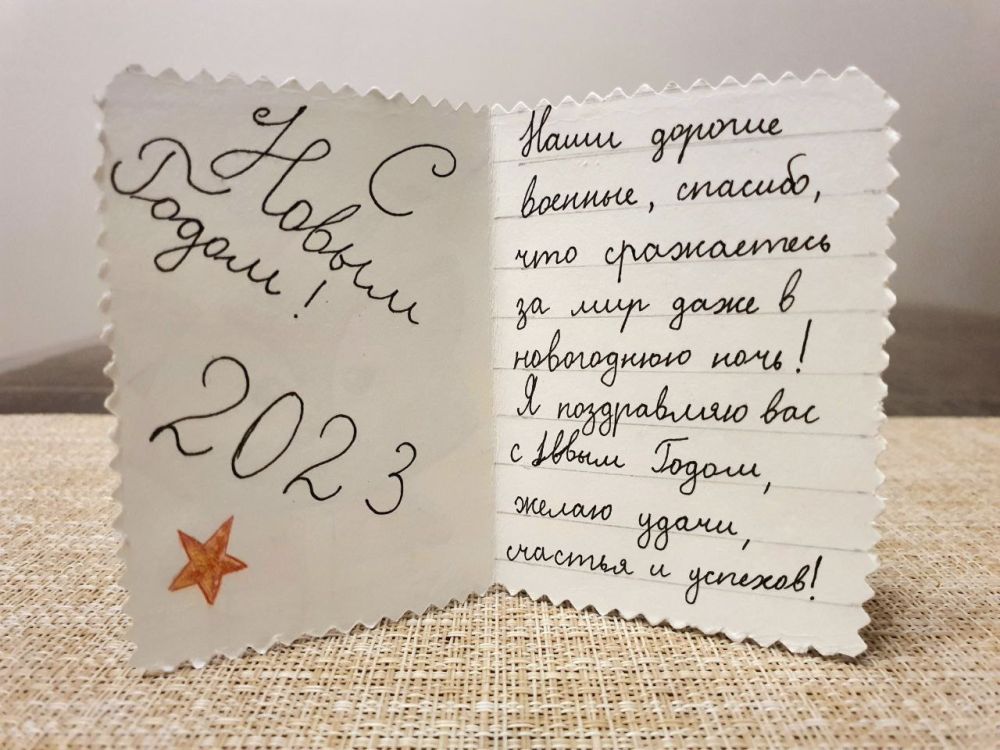 С
Новым
Годом!
2023
Наши дорогие
военные, спасибо,
что сражаетесь
за мир даже в
новогоднюю ночь!
Я поздравляю вас
с Нвым Годом,
желаю удачи,
счастья и успехов!